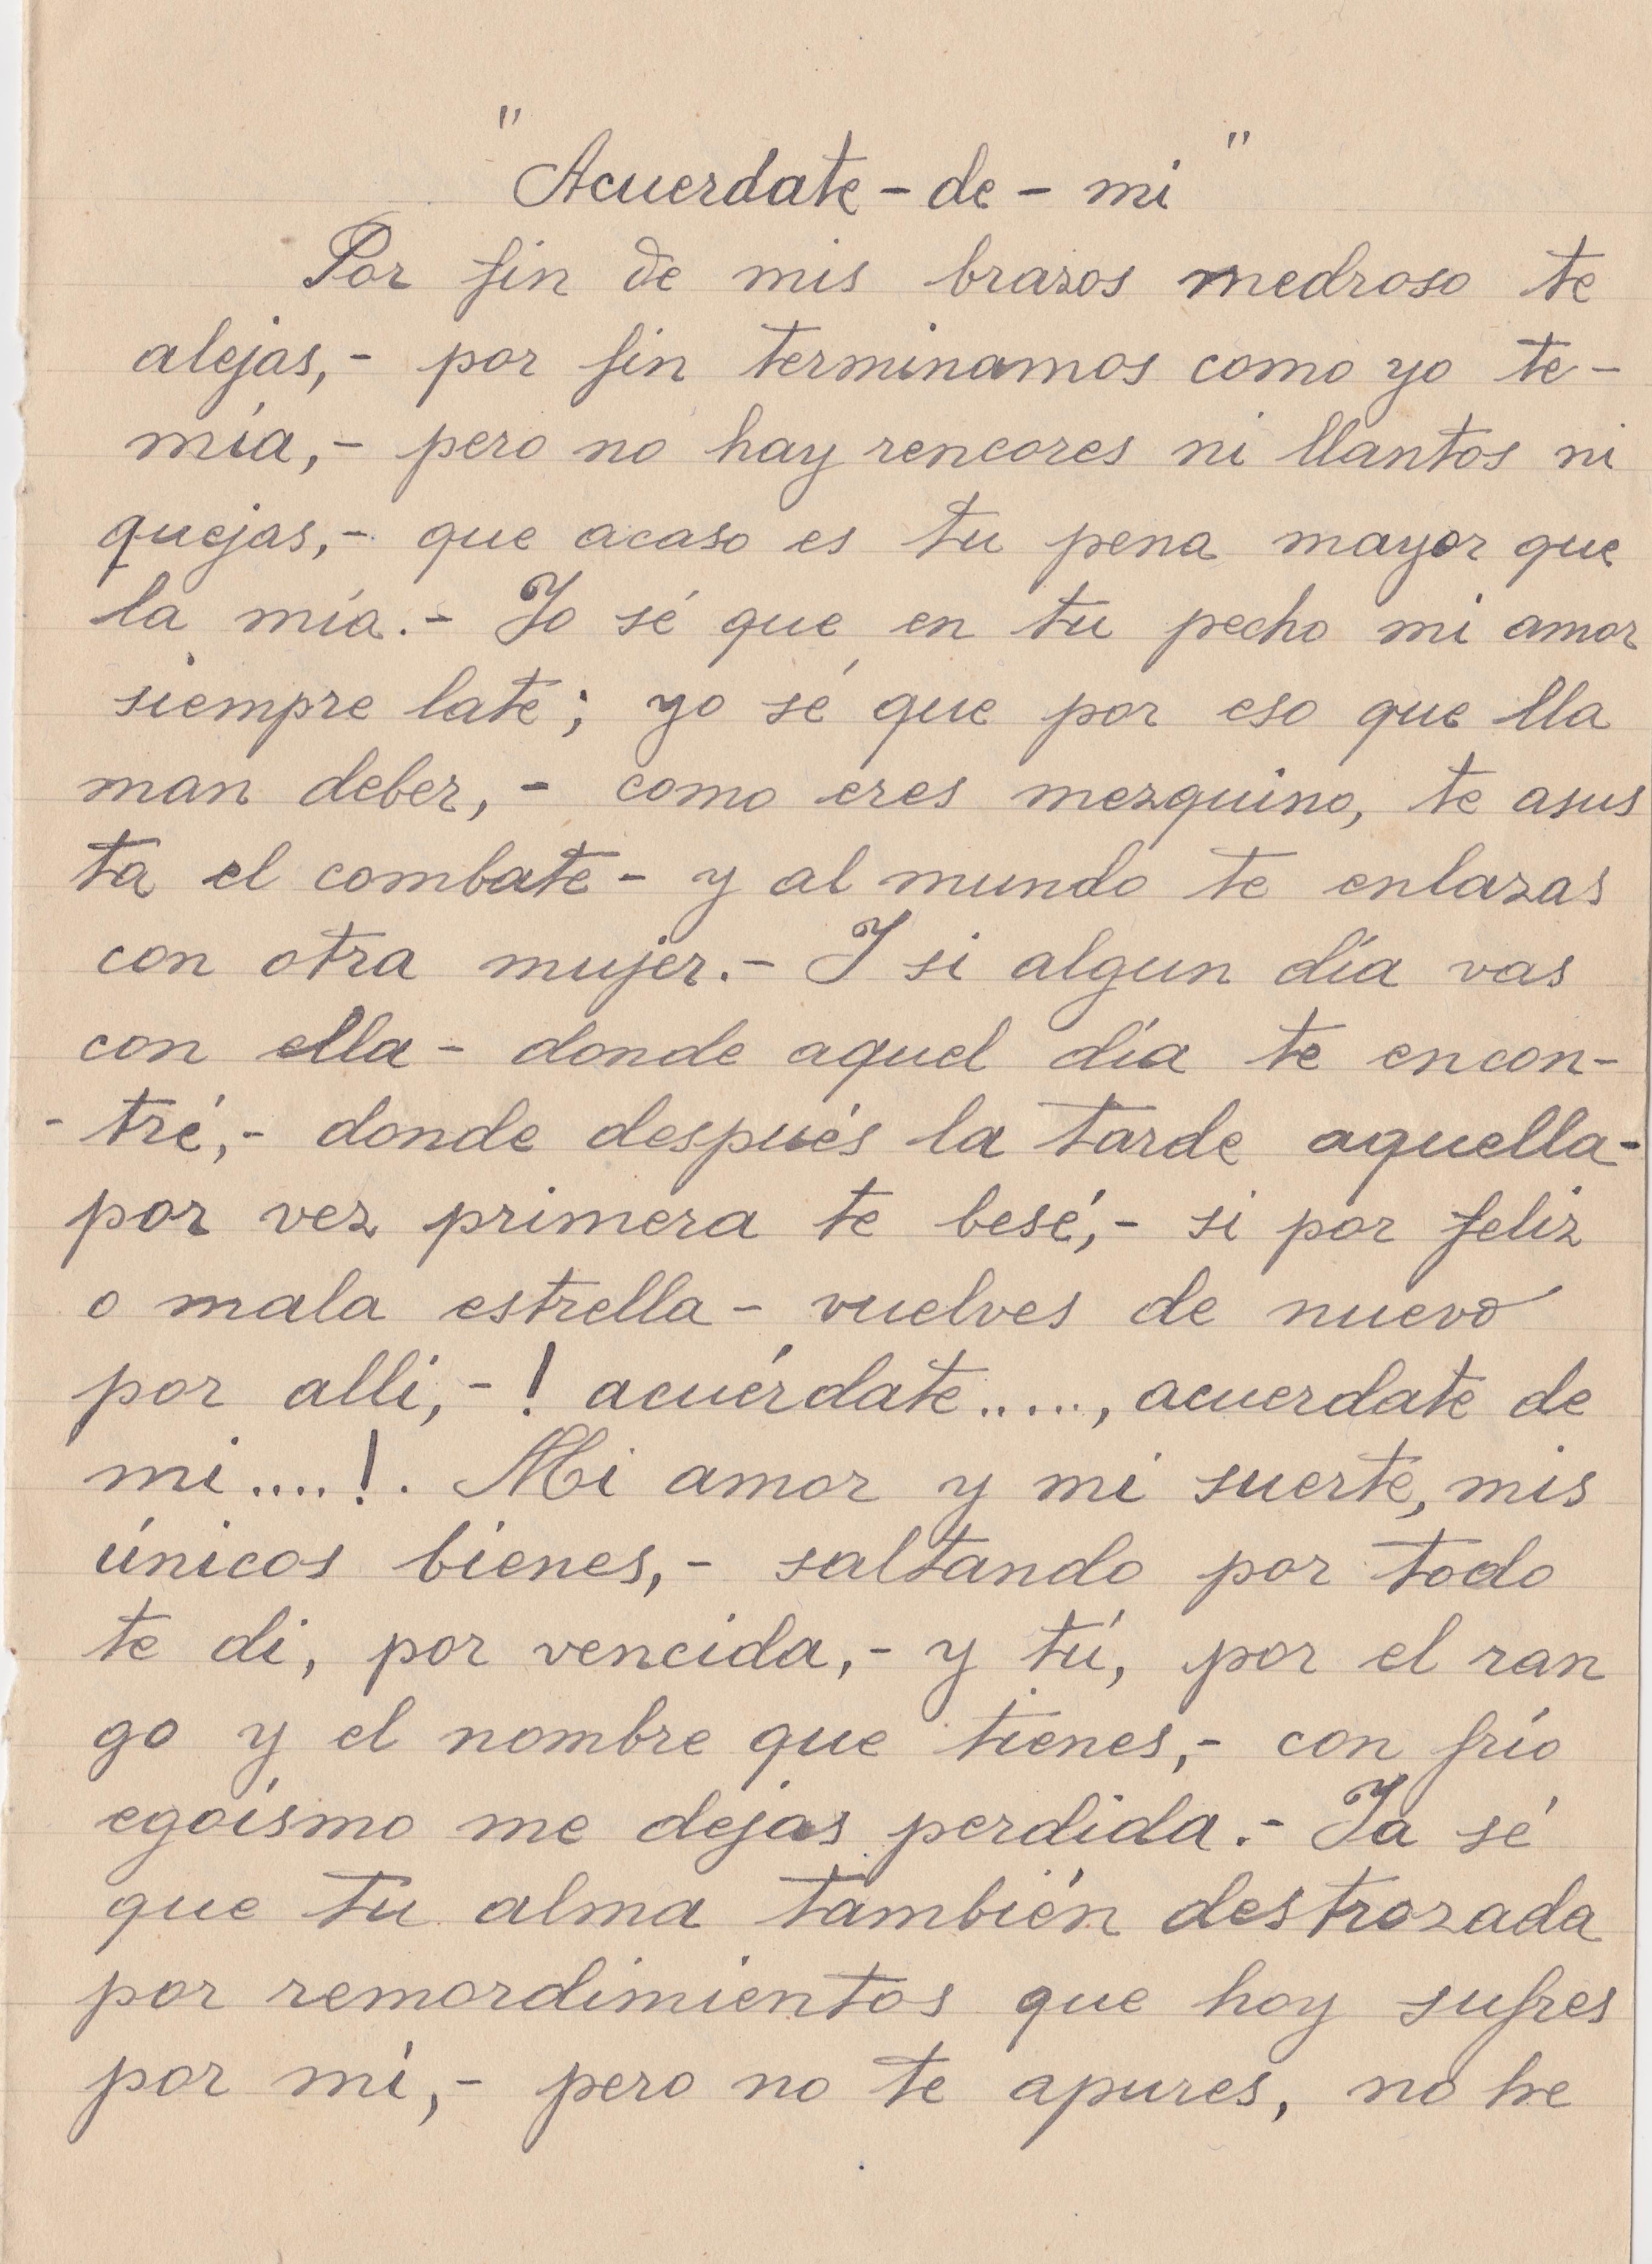 "Acuerdate - de - mi"
Por fin de mis brazos medroso te
alejas,- por fin terminamos como yo te-
mía,- pero no hay rencores ni llantos ni
quejas,- que acaso es tu pena mayor que
la mía.- Yo sé que en tu pecho mi amor
siempre late; yo sé que por eso que lla
man deber,- como eres mezquino, te asus
ta el combate - y al mundo te enlazas
con otra mujer.- Y si algun día vas
con ella - donde aquel día te encon-
- tré,- donde después la tarde aquella-
por vez primera te besé,- si por feliz
o mala estrella - vuelves de nuevo
por alli,- ! acuérdate....., acuerdate de
mi....!. Mi amor y mi suerte, mis
únicos bienes,- saltando por todo
te di, por vencida,- y tú, por el ran
go y el nombre que tienes,- con frío
egoísmo me dejas perdida.- Ya sé
que tu alma también destrozada
por remordimientos que hoy sufres
por mí,- pero no te apures, no he